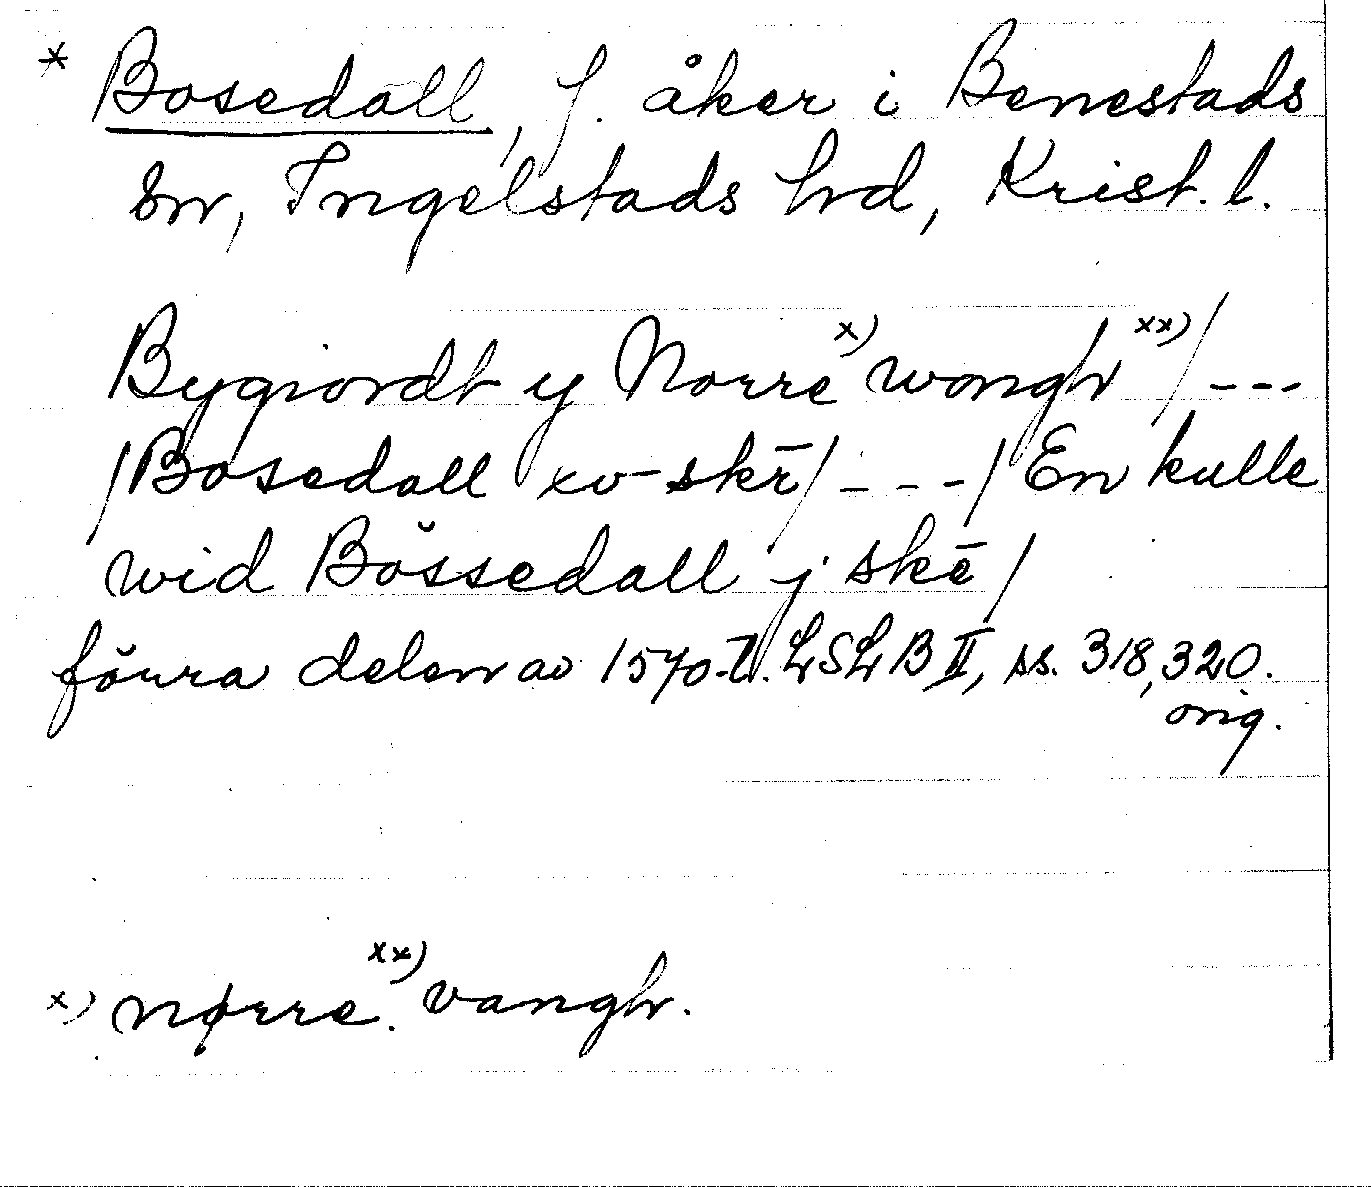 * Bosedall, f. åker i Benestads
sn, Ingelstads hd, Krist. l.
Bygiordt y Norre x) wongh xx) / ---
/Bosedall xv-skr̄/ - - - / En kulle
wid Bössedall j skē /
förra delen av 1570-t. LSLB II, ss. 318, 320.
orig.
x) nørre. xx) vangh.